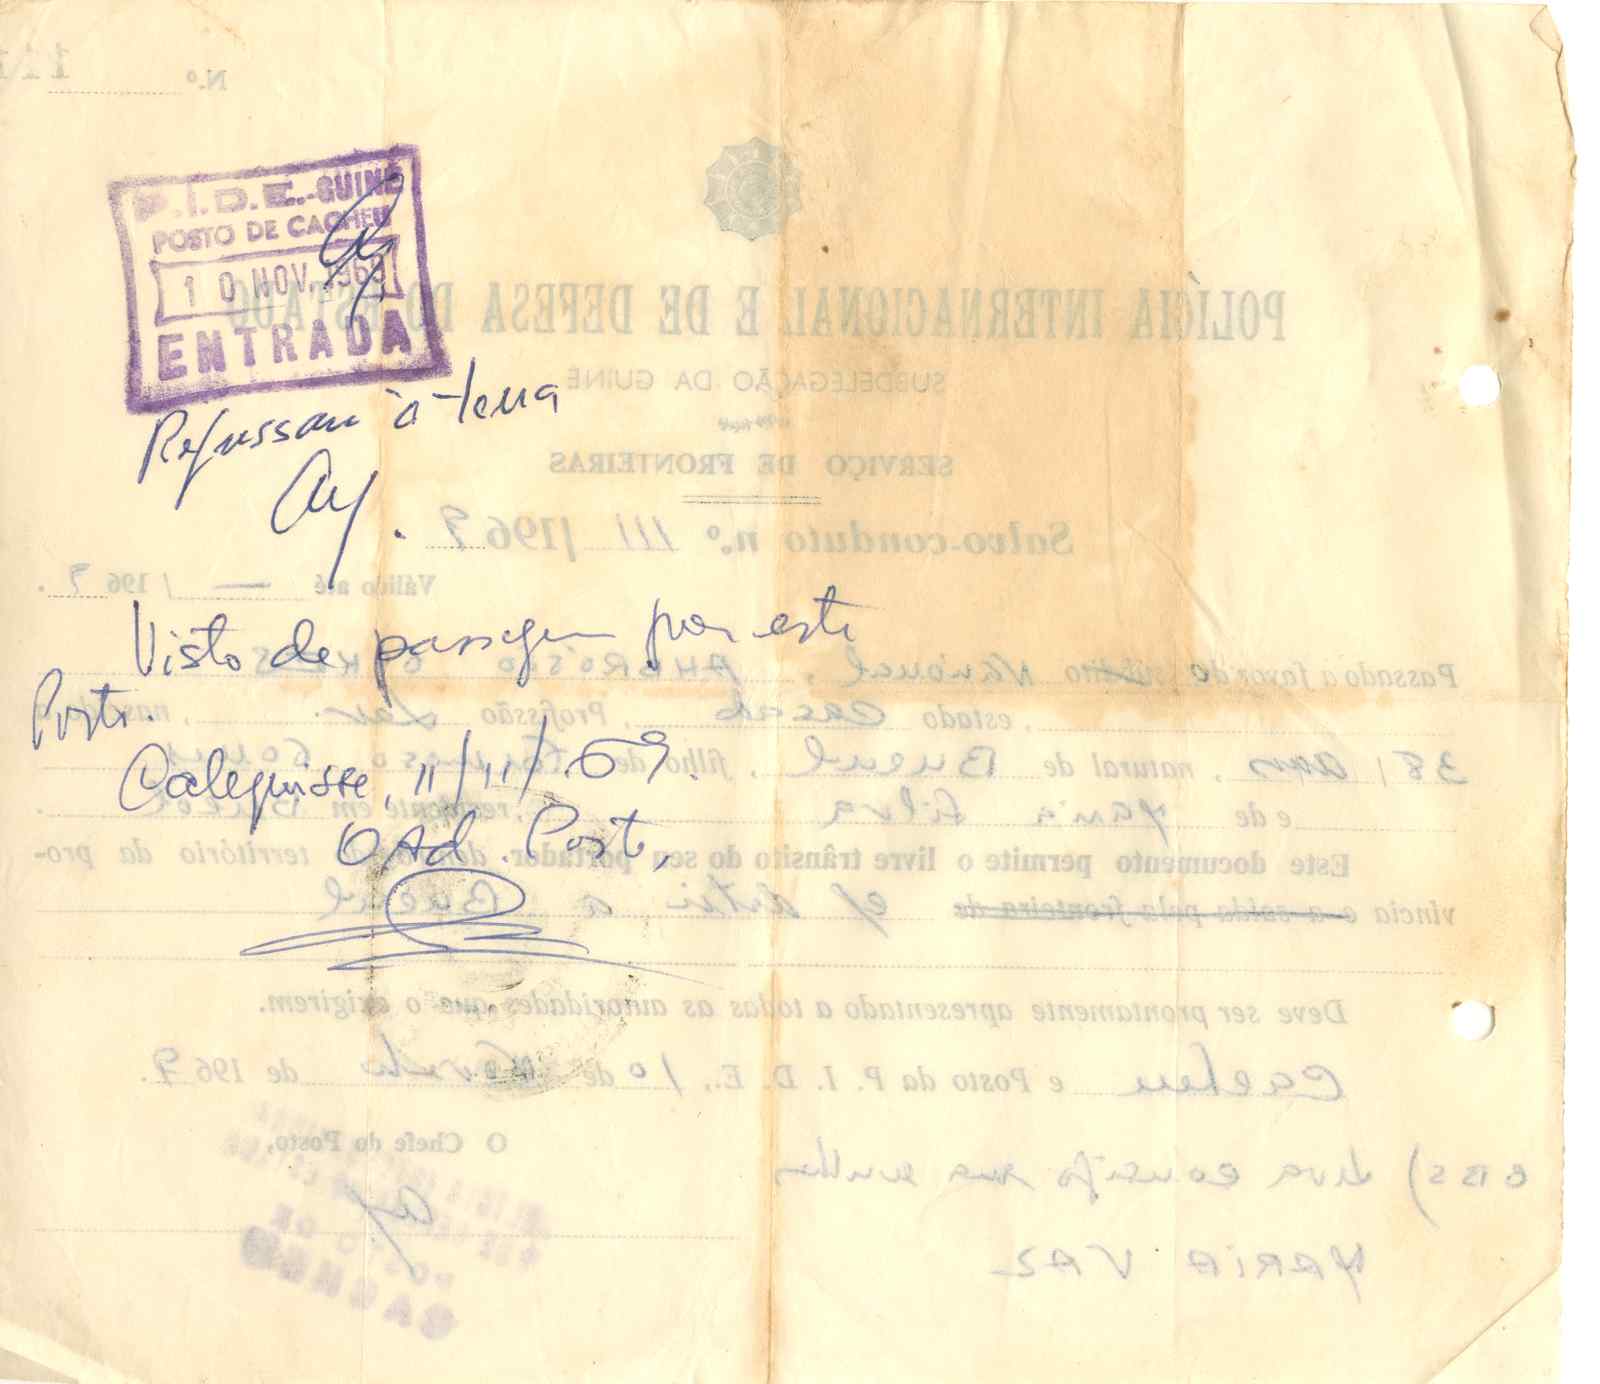 P.I.D.E.-GUINÉ
POSTO DE CACHEU
10 NOV. 1969
ENTRADA
Regressam à terra
Visto de passagem por este
Posto.
Calequisse, 11/11/69.
O Ad. Posto,
N.º 111
POLÍCIA INTERNACIONAL E DE DEFESA DO ESTADO
SUBDELEGAÇÃO DA GUINÉ
SERVIÇO DE FRONTEIRAS
Salvo-conduto n.º 111/1969
Válido até — / 1969.
Passado a favor do súbdito Nacional, AMBRÓSIO GOMES
, estado casado, Profissão Lav., nascido a
38 / anos, natural de , filho de Gomes
e de Maria Silva, residente em
Este documento permite o livre trânsito do seu portador, dentro do território da pro-
víncia e a saída pela fronteira de
Deve ser prontamente apresentado a todas as autoridades que o exigirem.
Cacheu e Posto da P. I. D. E., 10 de Novembro de 1969.
O Chefe do Posto,
OBS) Leva consigo sua mulher
MARIA VAZ